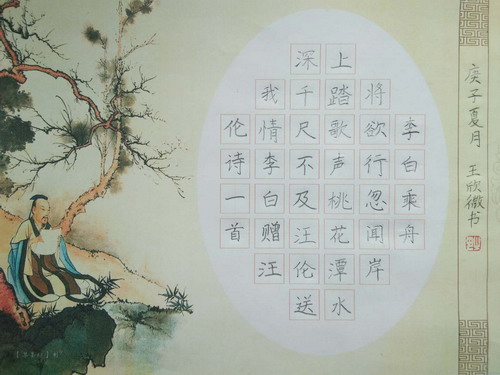 李白乘舟
将欲行忽闻岸
上踏歌声桃花潭水
深千尺不及汪伦送
我情李白赠汪
伦诗一首
庚子夏月 王欣微书